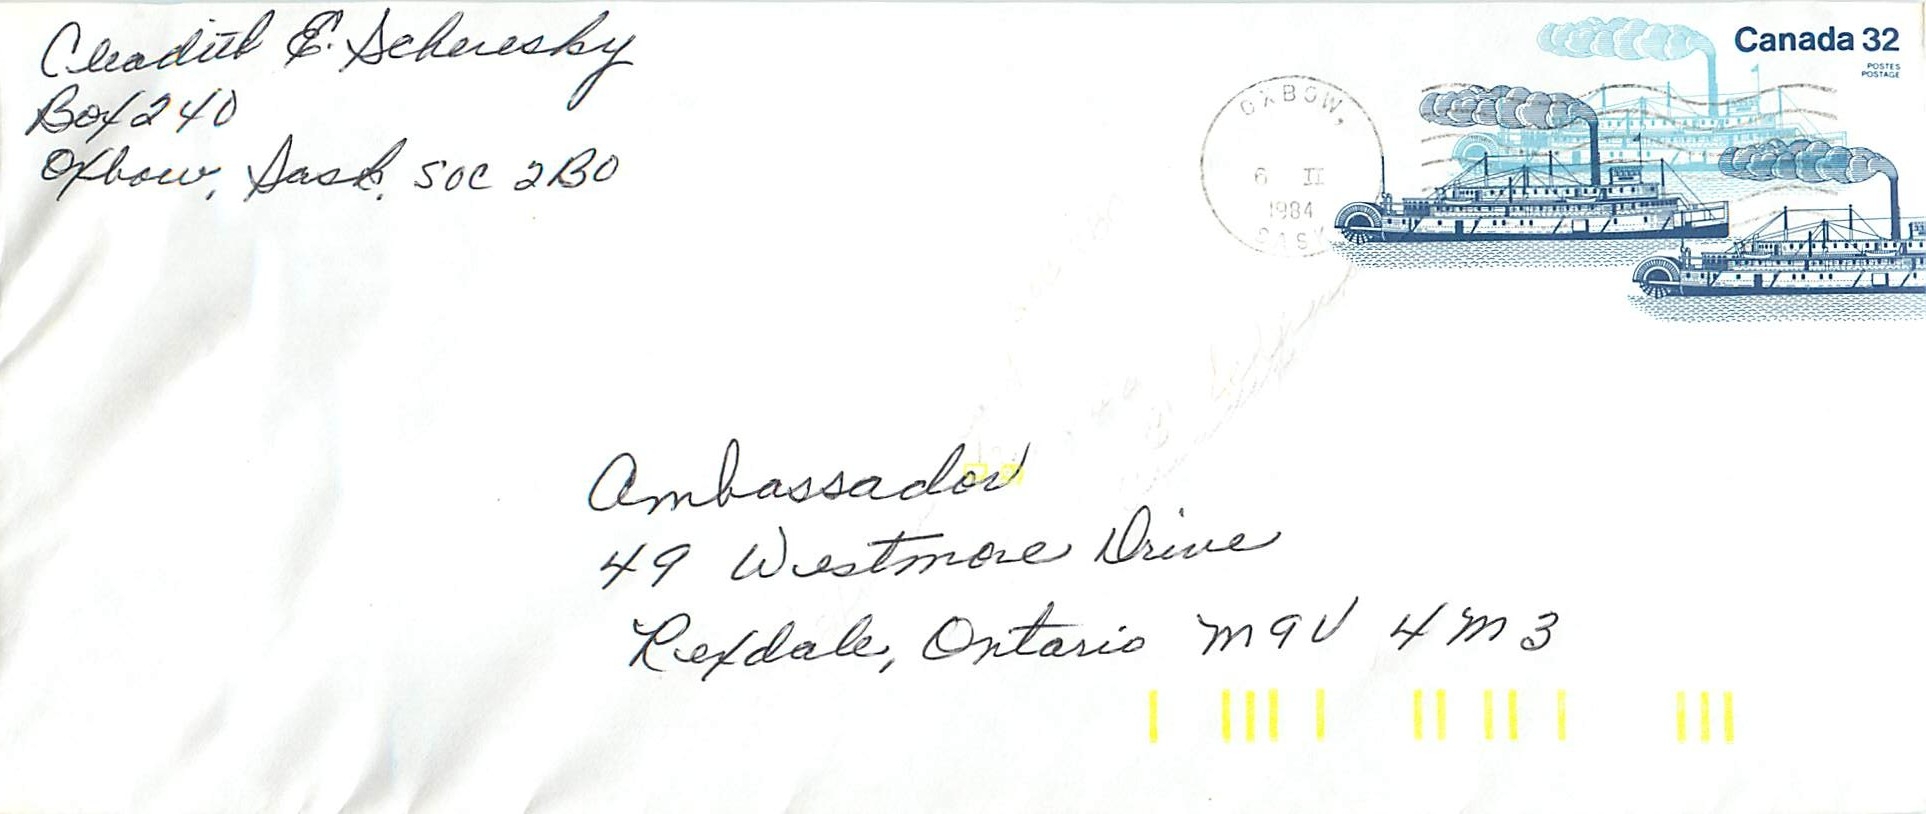 E. Scheresky
Box 240
Oxbow, Sask. S0C 2B0
Canada 32
POSTES
POSTAGE
OXBOW,
6 II
1984
SASK
Ambassador
49 Westmore Drive
Rexdale, Ontario M9V 4M3